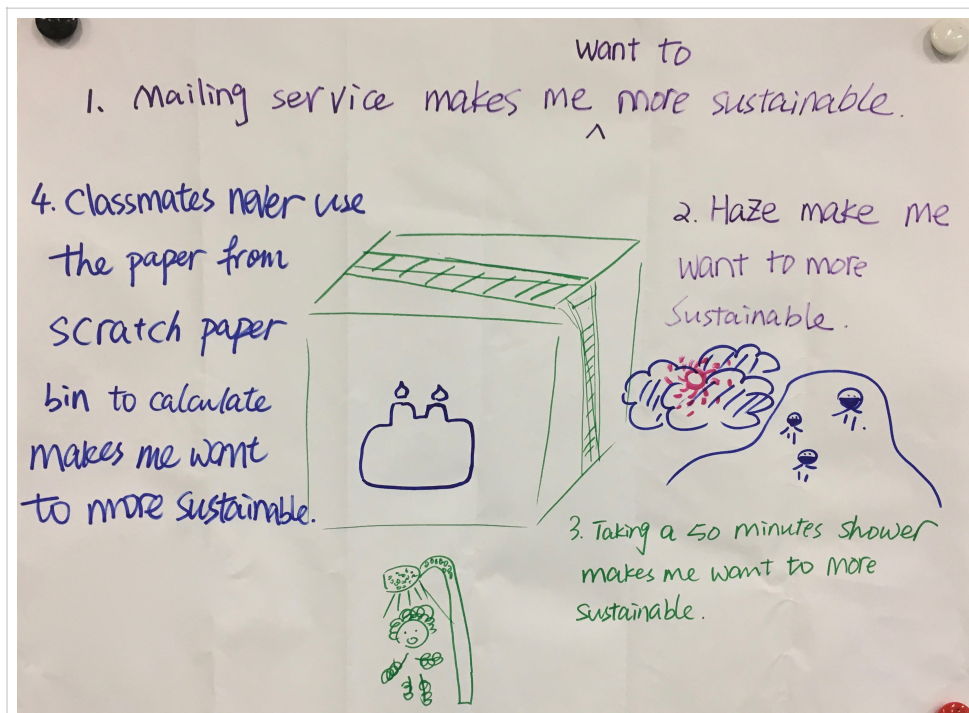 want to
1. Mailing service makes me ^ more sustainable.
4. Classmates never use
the paper from
scratch paper
bin to calculate
makes me want
to more sustainable.
2. Haze make me
want to more
Sustainable.
3. Taking a 50 minutes shower
makes me want to more
sustainable.